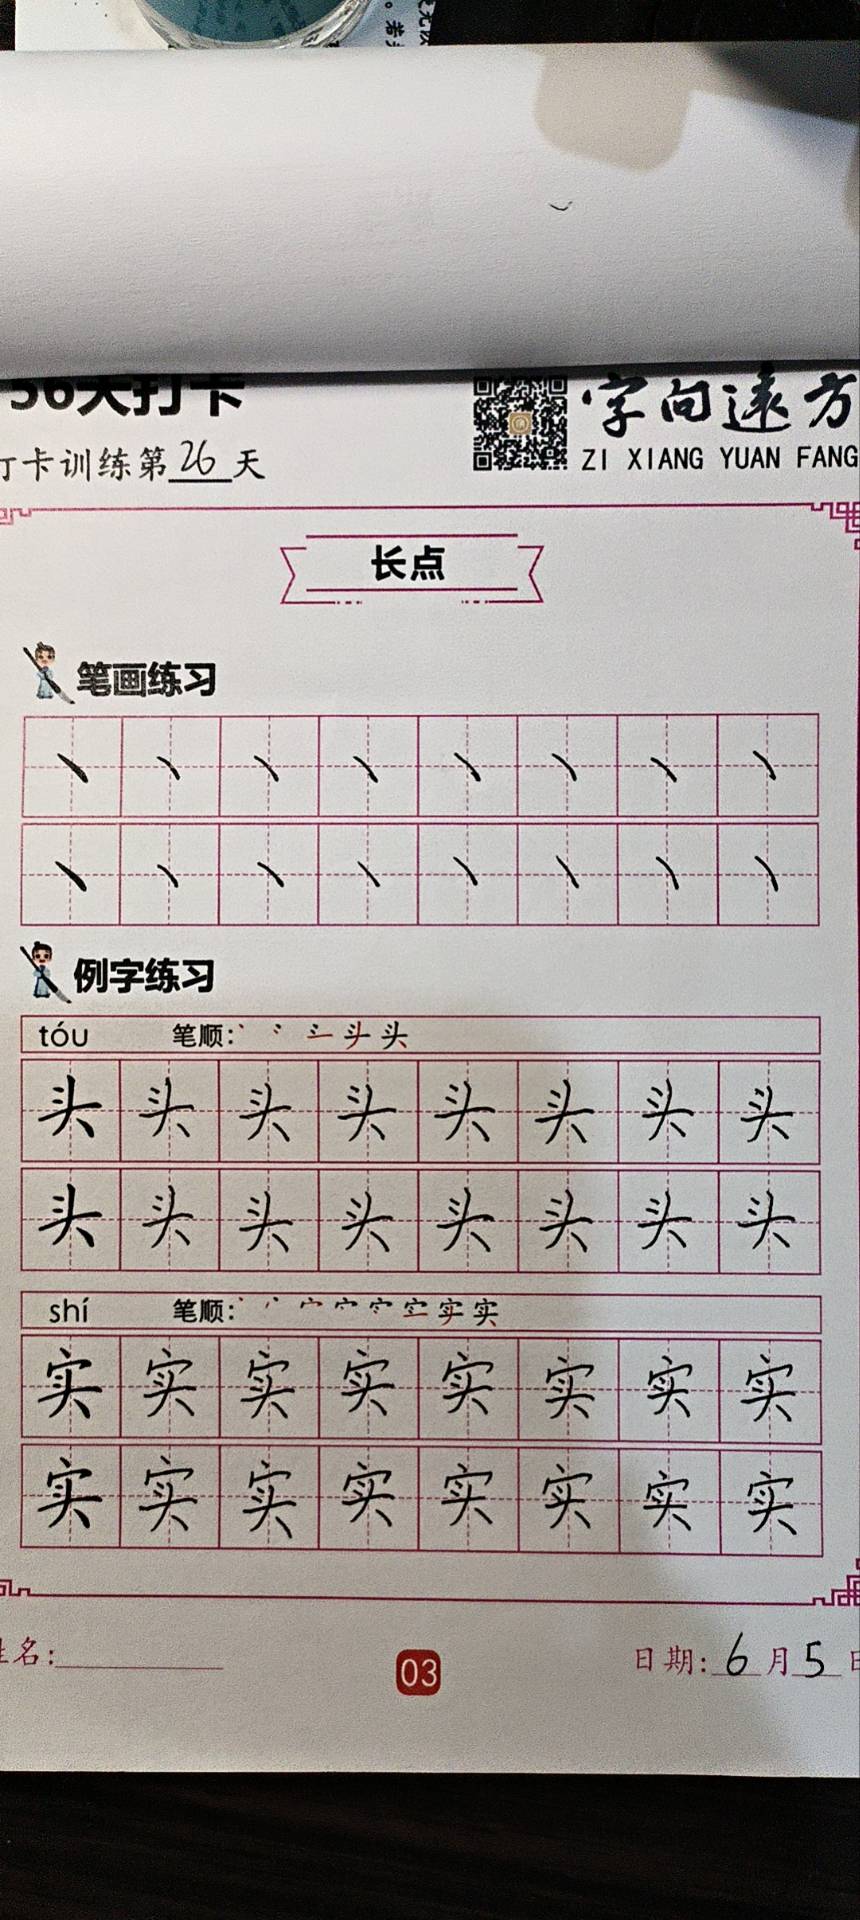 56天打卡
字向远方
打卡训练第26天
ZI XIANG YUAN FANG
长点
笔画练习
丶丶丶丶丶丶丶丶
丶丶丶丶丶丶丶丶
例字练习
tóu 笔顺: 头
头头头头头头头头
头头头头头头头头
shí 笔顺: 实
实实实实实实实实
实实实实实实实实
姓名:
03
日期: 6月5日